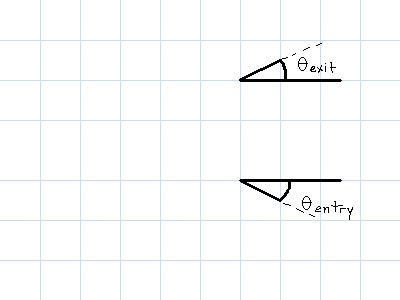 θexit
θentry